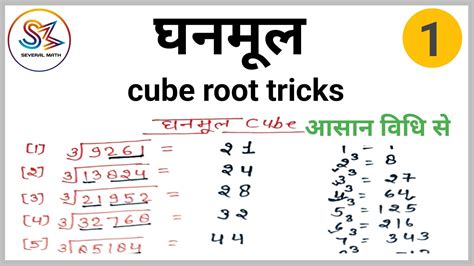 SM
SEVERAL MATH
घनमूल
1
cube root tricks
घनमूल Cube आसान विधि से
[1] 3√9261 = 21
[2] 3√13824 = 24
[3] 3√21952 = 28
[4] 3√32768 = 32
[5] 3√85184 = 44
1 = 1
2³ = 8
3³ = 27
4³ = 64
5³ = 125
6³ = 216
7³ = 343